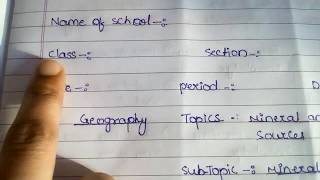 Name of School -:
Class -: Section -:
period -: D
Geography Topics - Mineral an
Sources
Sub Topic -: Mineral